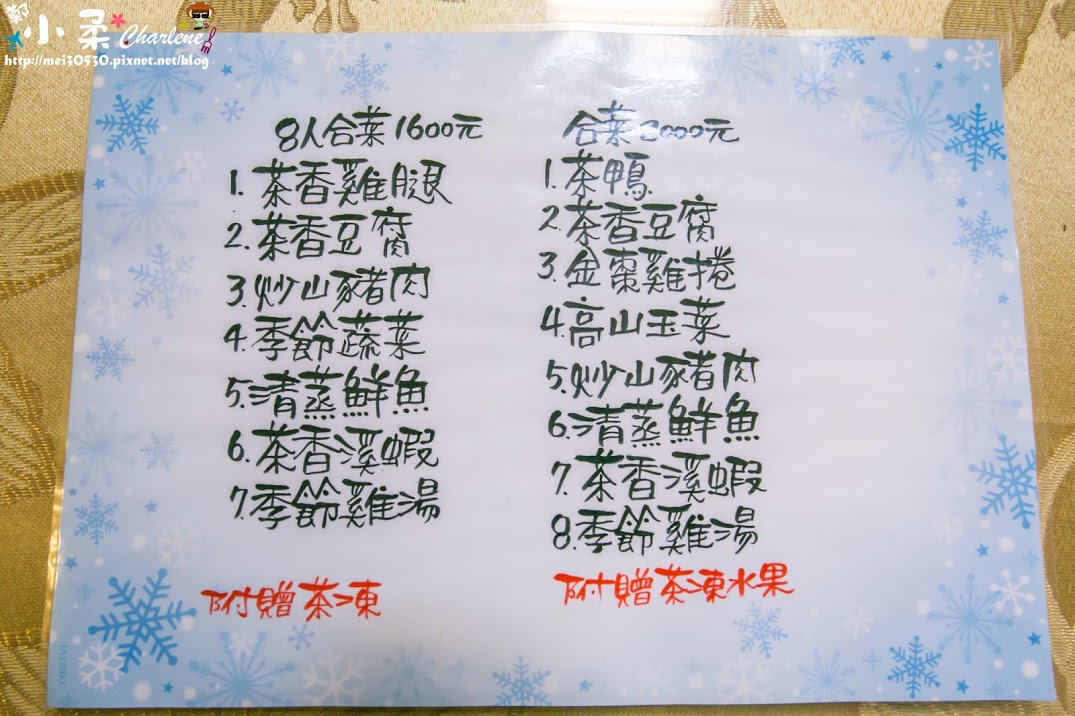 鄭
小柔 Charlene
http://mei30530.pixnet.net/blog
8人合菜1600元
1.茶香雞腿
2.茶香豆腐
3.炒山豬肉
4.季節蔬菜
5.清蒸鮮魚
6.茶香溪蝦
7.季節雞湯
附贈茶凍
合菜2000元
1.茶鴨
2.茶香豆腐
3.金棗雞捲
4.高山玉菜
5.炒山豬肉
6.清蒸鮮魚
7.茶香溪蝦
8.季節雞湯
附贈茶凍水果